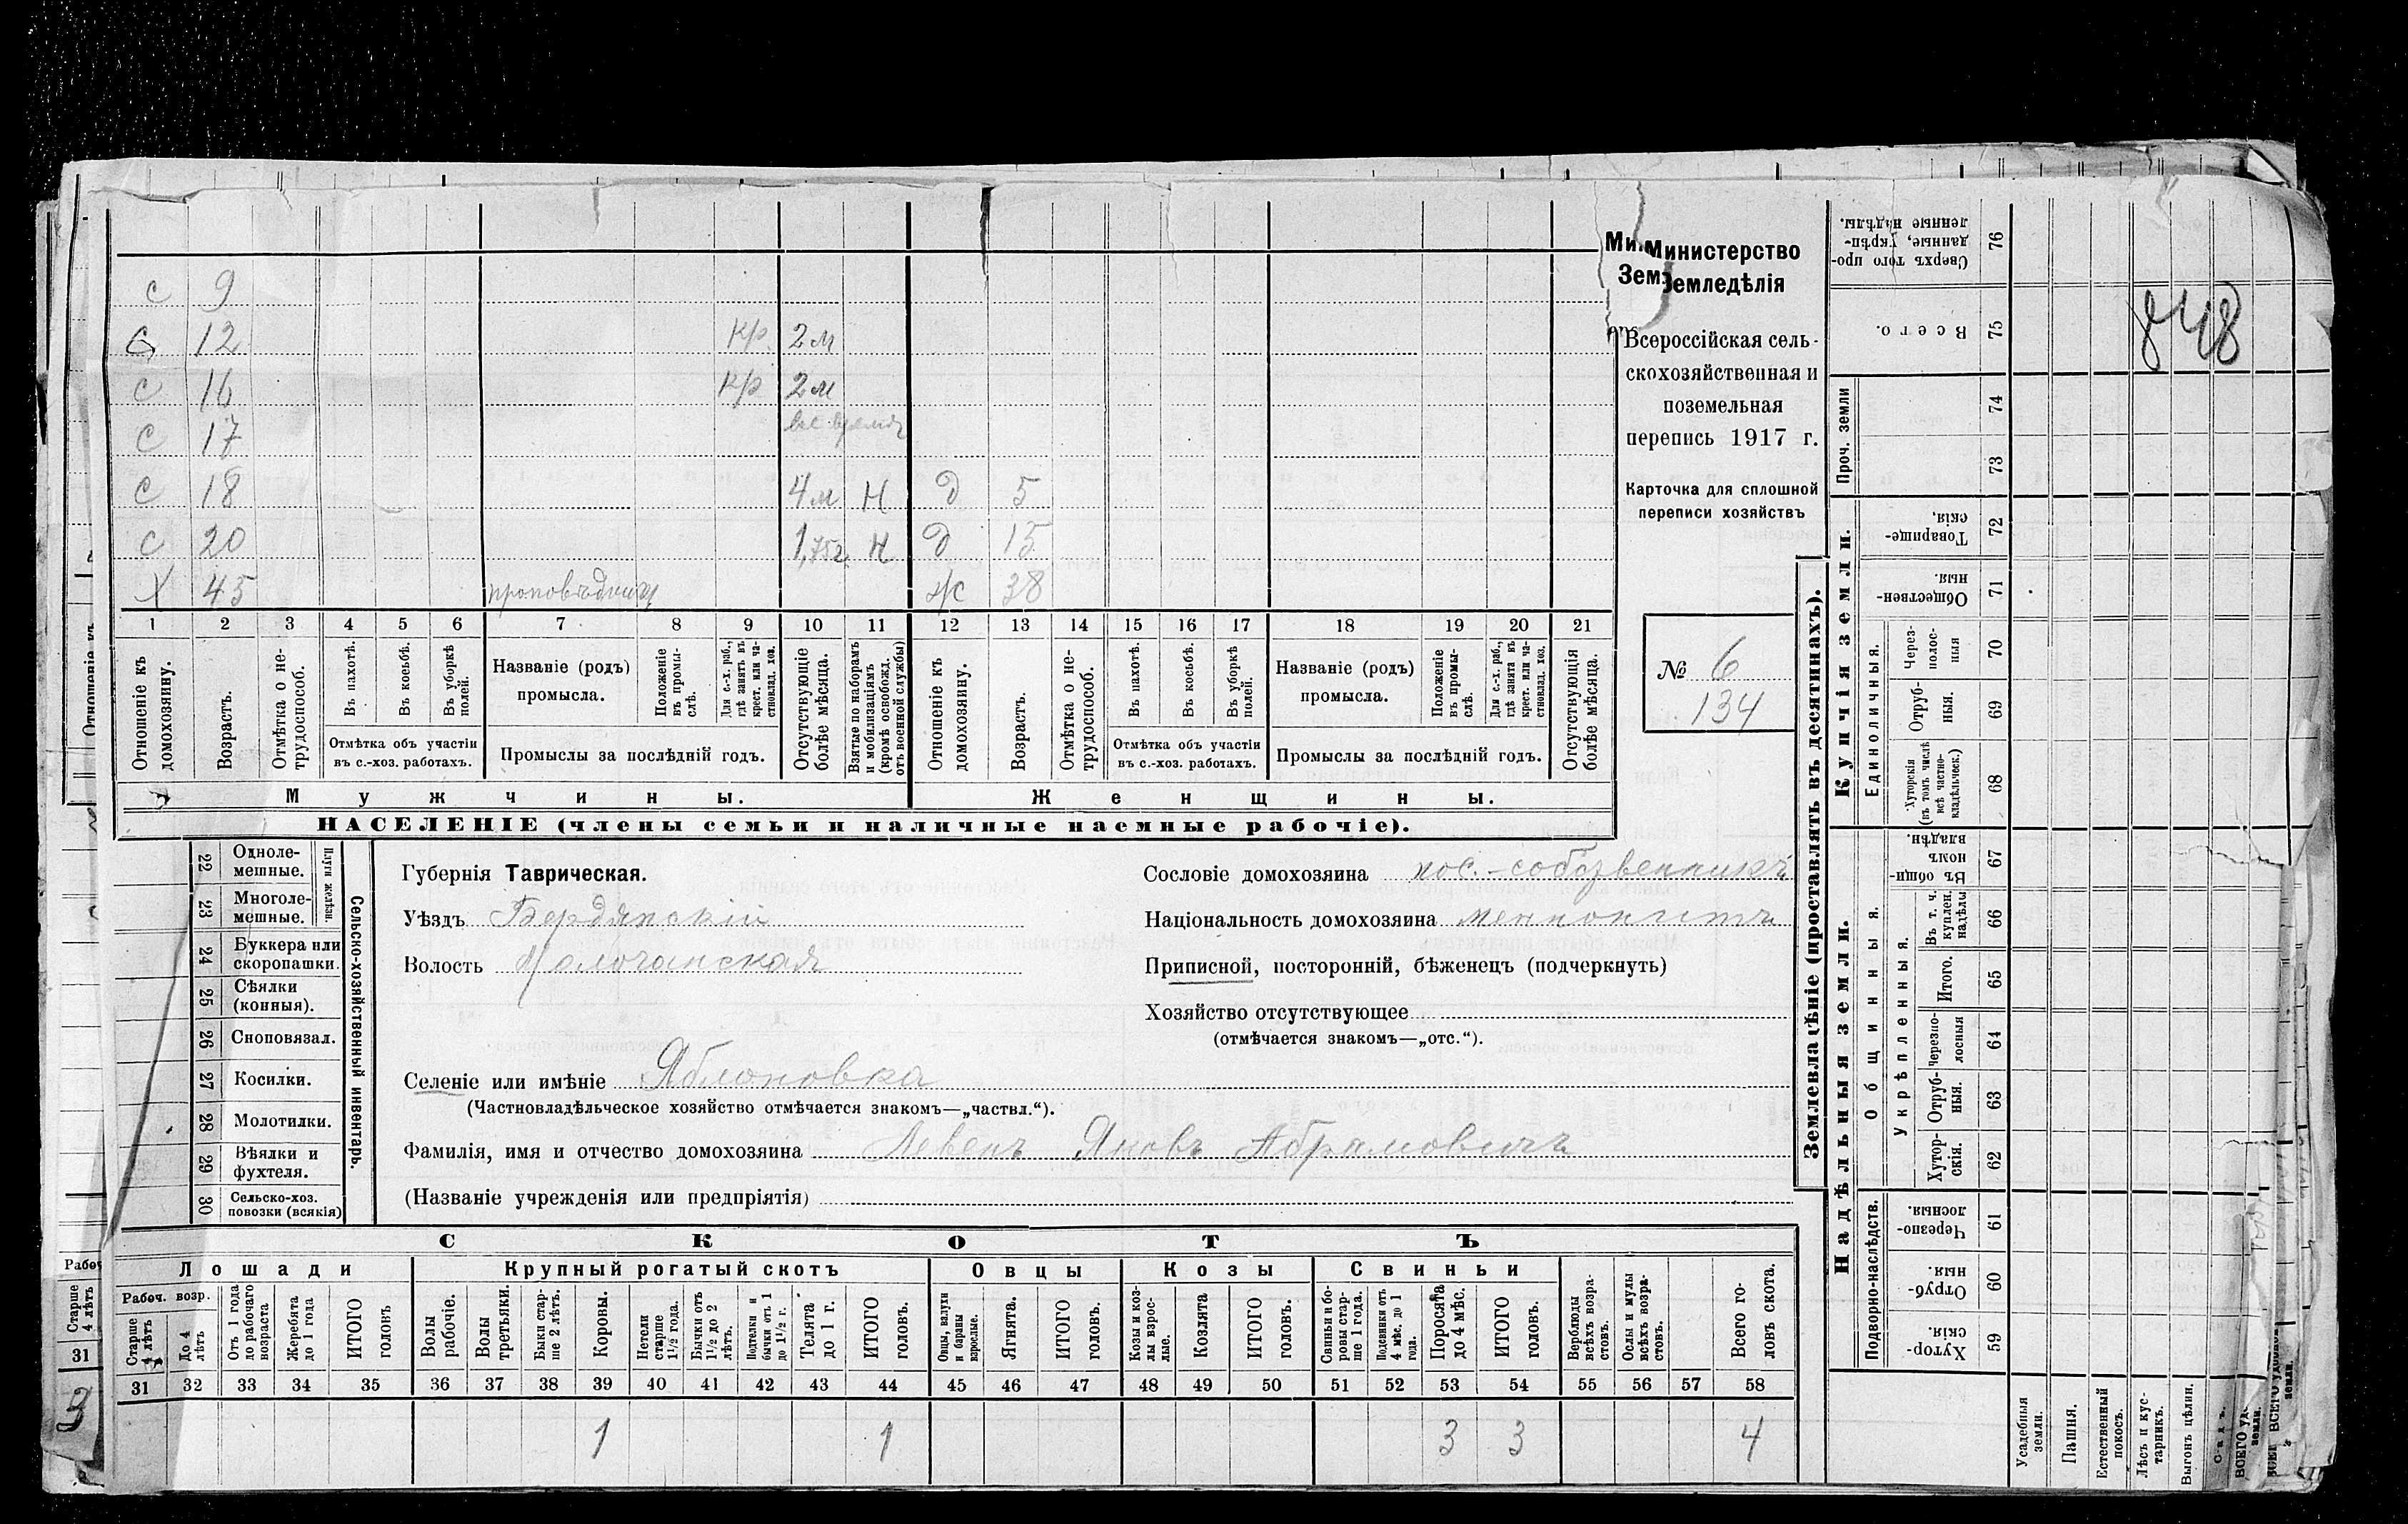 с 9
с 12 кр. 2 м
с 16 кр 2 м
с 17 все время
с 18 4 м Н д 5
с 20 1,75 г. Н д 15
х 45 проповѣдник ж 38
1 2 3 4 5 6 7 8 9 10 11 12 13 14 15 16 17 18 19 20 21
Отношеніе къ домохозяину.
Возрастъ.
Отмѣтка о не-трудоспособ.
Въ пахотѣ.
Въ косьбѣ.
Въ уборкѣ полей.
Отмѣтка объ участіи въ с.-хоз. работахъ.
Названіе (родъ) промысла.
Положеніе въ промы-слѣ.
Для с.-х. раб., гдѣ занятъ въ крест. или ча-стновлад. хоз.
Промыслы за послѣдній годъ.
Отсутствующіе болѣе мѣсяца.
Взятые по наборамъ и мобилизаціямъ (кромѣ освобожд. отъ военной службы)
Отношеніе къ домохозяину.
Возрастъ.
Отмѣтка о не-трудоспособ.
Въ пахотѣ.
Въ косьбѣ.
Въ уборкѣ полей.
Отмѣтка объ участіи въ с.-хоз. работахъ.
Названіе (родъ) промысла.
Положеніе въ промы-слѣ.
Для с.-х. раб., гдѣ занята въ крест. или ча-стновлад. хоз.
Промыслы за послѣдній годъ.
Отсутствующія болѣе мѣсяца.
Мужчины. Женщины.
НАСЕЛЕНІЕ (члены семьи и наличные наемные рабочіе).
Ми
Зем
Министерство
Земледѣлія
Всероссійская сель-
скохозяйственная и
поземельная
перепись 1917 г.
Карточка для сплошной
переписи хозяйствъ
№ 6
134
Плуги желѣзн.
22 Одноле-мешные.
23 Многоле-мешные.
24 Буккера или скоропашки.
25 Сѣялки (конныя).
26 Сноповязал.
27 Косилки.
28 Молотилки.
29 Вѣялки и фухтеля.
30 Сельско-хоз. повозки (всякія)
Сельско-хозяйственный инвентарь.
Губернія Таврическая.
Уѣздъ Бердянскій
Волость Молочанская
Селеніе или имѣніе Яблоновка
(Частновладѣльческое хозяйство отмѣчается знакомъ—„частвл.“).
Фамилія, имя и отчество домохозяина Левенъ Яковъ Абрамовичъ
(Названіе учрежденія или предпріятія)
Сословіе домохозяина пос.-собственникъ
Національность домохозяина меннонитъ
Приписной, посторонній, бѣженецъ (подчеркнуть)
Хозяйство отсутствующее
(отмѣчается знакомъ—„отс.“).
СКОТЪ
Лошади Крупный рогатый скотъ Овцы Козы Свиньи
Рабоч. возр.
Старше 4 лѣтъ
До 4 лѣтъ
Отъ 1 года до рабочаго возраста
Жеребята до 1 года
ИТОГО головъ
Волы рабочіе.
Волы третьяки.
Быки стар-ше 2 лѣтъ.
Коровы.
Нетели старше 1½ года.
Бычки отъ 1½ до 2 лѣтъ.
Подтелки и бычки отъ 1 до 1½ г.
Телята до 1 г.
ИТОГО головъ.
Овцы, валухи и бараны взрослые.
Ягнята.
ИТОГО головъ.
Козы и коз-лы взрос-лые.
Козлята
ИТОГО головъ.
Свиньи и бо-ровы стар-ше 1 года.
Подсвинки отъ 4 мѣс. до 1 года.
Поросята до 4 мѣс.
ИТОГО головъ.
Верблюды всѣхъ возра-стовъ.
Ослы и мулы всѣхъ возра-стовъ.
Всего го-ловъ скота.
31 32 33 34 35 36 37 38 39 40 41 42 43 44 45 46 47 48 49 50 51 52 53 54 55 56 57 58
1 1 3 3 4
Рабоч
Старше 4 лѣтъ
31
3
Землевладѣніе (проставлять въ десятинахъ).
Надѣльныя земли. Купчія земли.
Проч. земли
Сверхъ того про-данные, укрѣп-ленные надѣлы. 76
Всего. 75
74
73
Товарище-скія, 72
Обществен-ныя. 71
Единоличныя.
Через-полос-ныя 70
Отруб-ныя. 69
Хуторскія (въ томъ числѣ всѣ частно-владѣльческ.) 68
Общинныя.
Въ общи-номъ владѣн. 67
Укрѣпленныя.
Въ т. ч. куплен. надѣлы 66
Итого. 65
Черезпо-лосныя 64
Отруб-ныя. 63
Хутор-скія. 62
Подворно-наслѣдств.
Черезпо-лосныя. 61
Отруб-ныя. 60
Хутор-скія. 59
Усадебныя земли.
Пашня.
Естественный покосъ.
Лѣсъ и кус-тарникъ.
Выгонъ цѣлин.
Садъ.